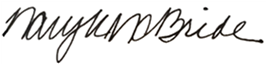 Mary K McBride